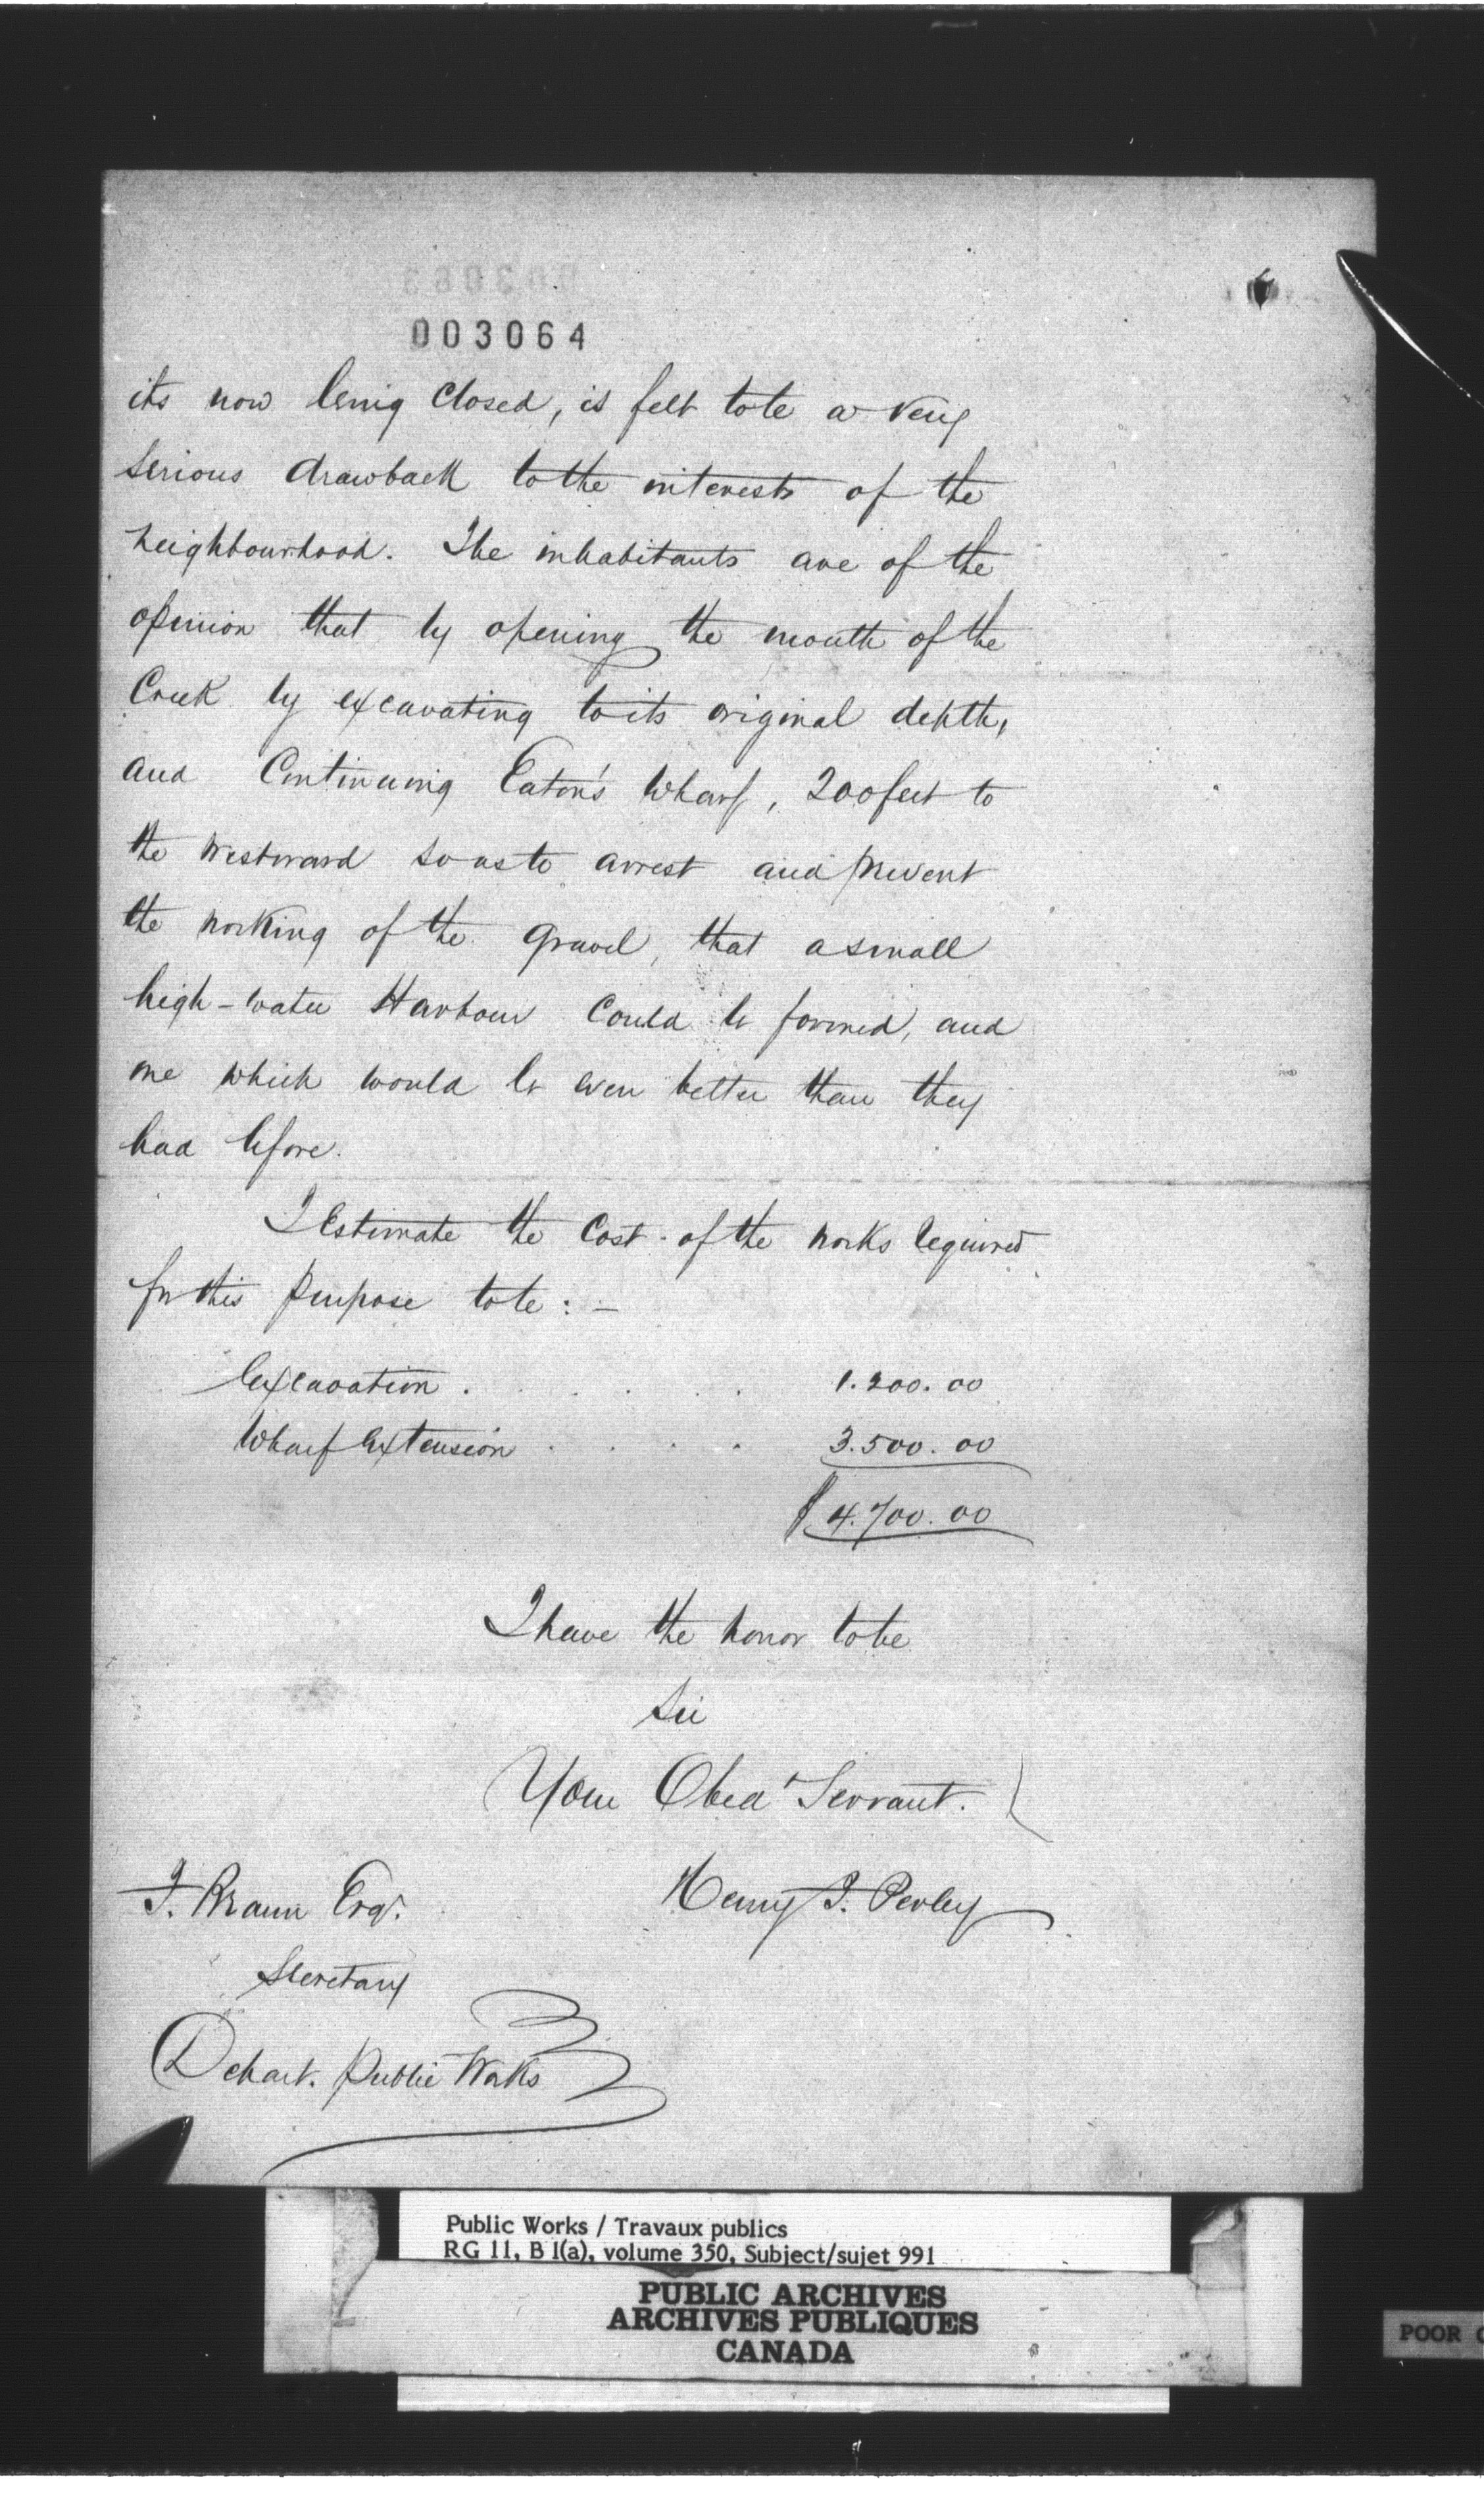 003063
003064
its now being closed, is felt to be a very
serious drawback to the interests of the
neighbourhood. The inhabitants are of the
opinion that by opening the mouth of the
Creek by excavating to its original depth,
and Continuing Eaton's Wharf, 200 feet to
the Westward so as to arrest and prevent
the working of the gravel, that a small
high-water Harbour could be formed, and
one which would be even better than they
had before.
I Estimate the Cost of the works required
for this purpose to be: -
Excavation . . . . 1.200.00
Wharf Extension . . . . 3.500.00
$ 4.700.00
I have the honor to be
Sir
Your Obed Servant.
F. Braun Esqr. Henry F. Perley
Secretary
Depart. Public Works
Public Works / Travaux publics
RG 11, B 1(a), volume 350, Subject/sujet 991
PUBLIC ARCHIVES
ARCHIVES PUBLIQUES
CANADA
POOR